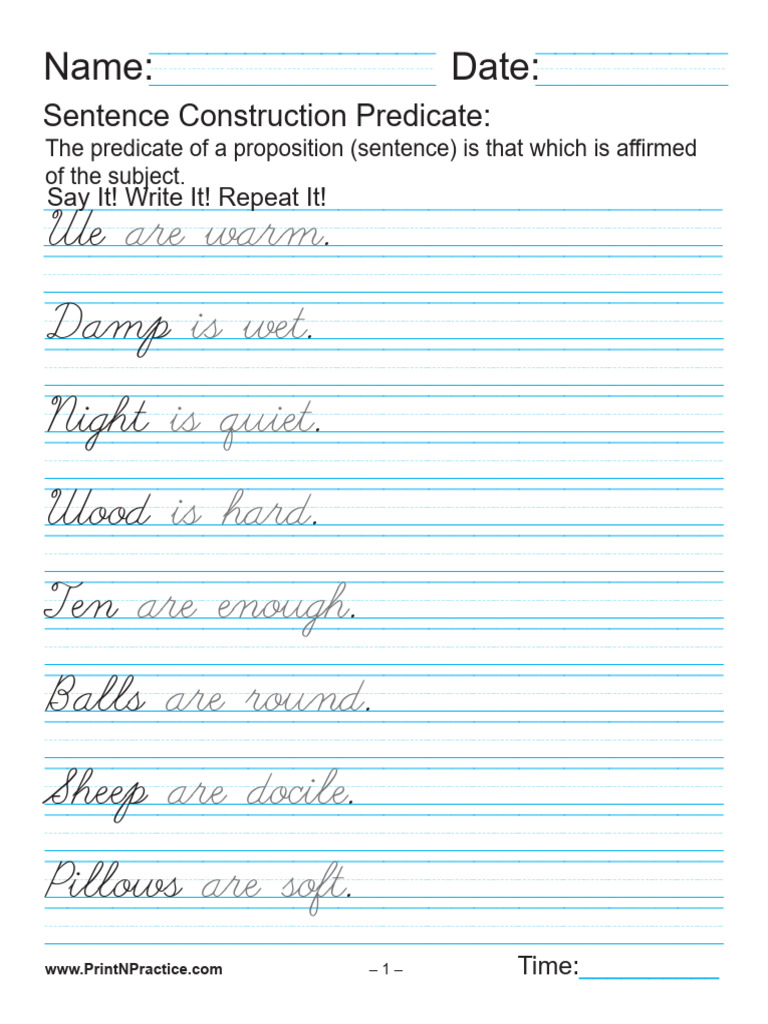 Name: Date:
Sentence Construction Predicate:
The predicate of a proposition (sentence) is that which is affirmed
of the subject.
Say It! Write It! Repeat It!
We are warm.
Damp is wet.
Night is quiet.
Wood is hard.
Ten are enough.
Balls are round.
Sheep are docile.
Pillows are soft.
www.PrintNPractice.com – 1 – Time: